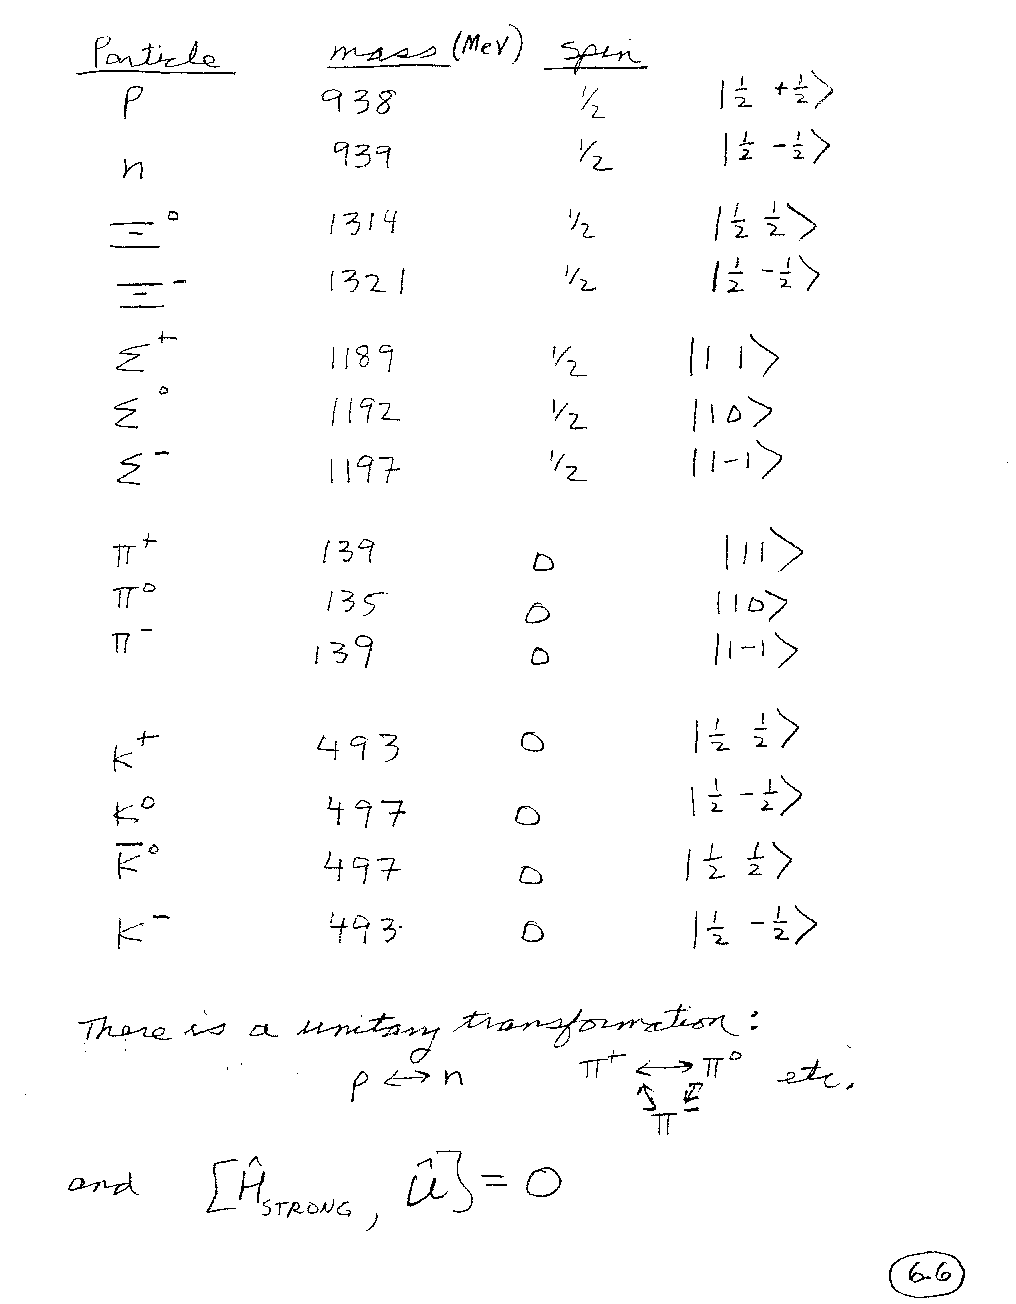 Particle mass (MeV) spin
P 938 1/2 |1/2 +1/2>
n 939 1/2 |1/2 -1/2>
Ξ⁰ 1314 1/2 |1/2 1/2>
Ξ⁻ 1321 1/2 |1/2 -1/2>
Σ⁺ 1189 1/2 |1 1>
Σ⁰ 1192 1/2 |1 0>
Σ⁻ 1197 1/2 |1 -1>
π⁺ 139 0 |1 1>
π⁰ 135 0 |1 0>
π⁻ 139 0 |1 -1>
K⁺ 493 0 |1/2 1/2>
K⁰ 497 0 |1/2 -1/2>
K̅⁰ 497 0 |1/2 1/2>
K⁻ 493 0 |1/2 -1/2>
There is a unitary transformation:
p ↔ n π⁺ ↔ π⁰ etc.
π⁻
and [Ĥ_STRONG, Û] = 0
6.6